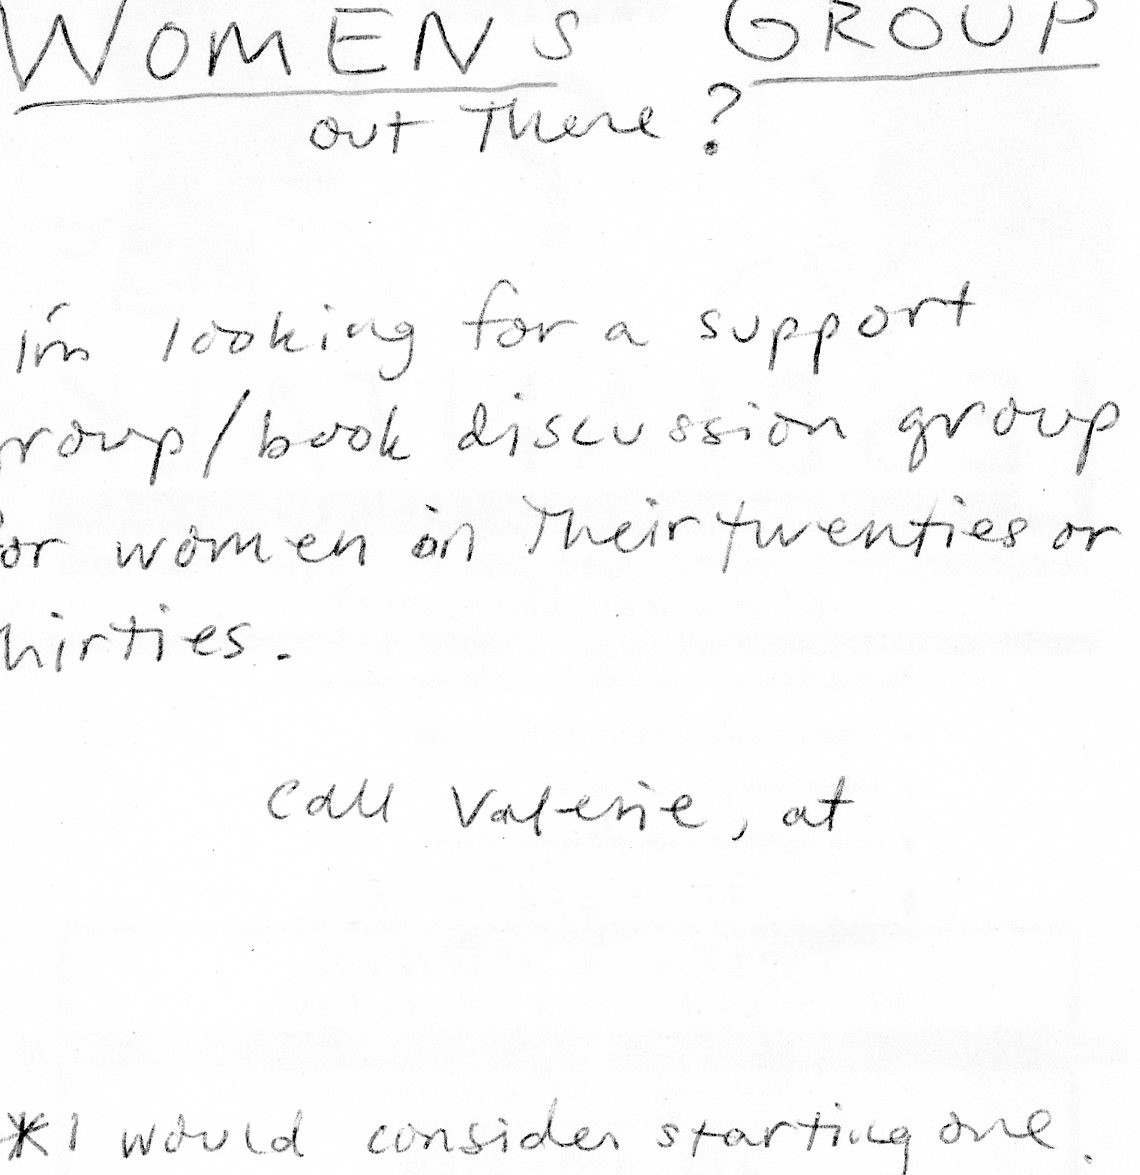 WOMENS GROUP
out There?
I'm looking for a support
roup/book discussion group
or women in Their twenties or
hirties.
Call Valerie, at
*I would consider starting one.